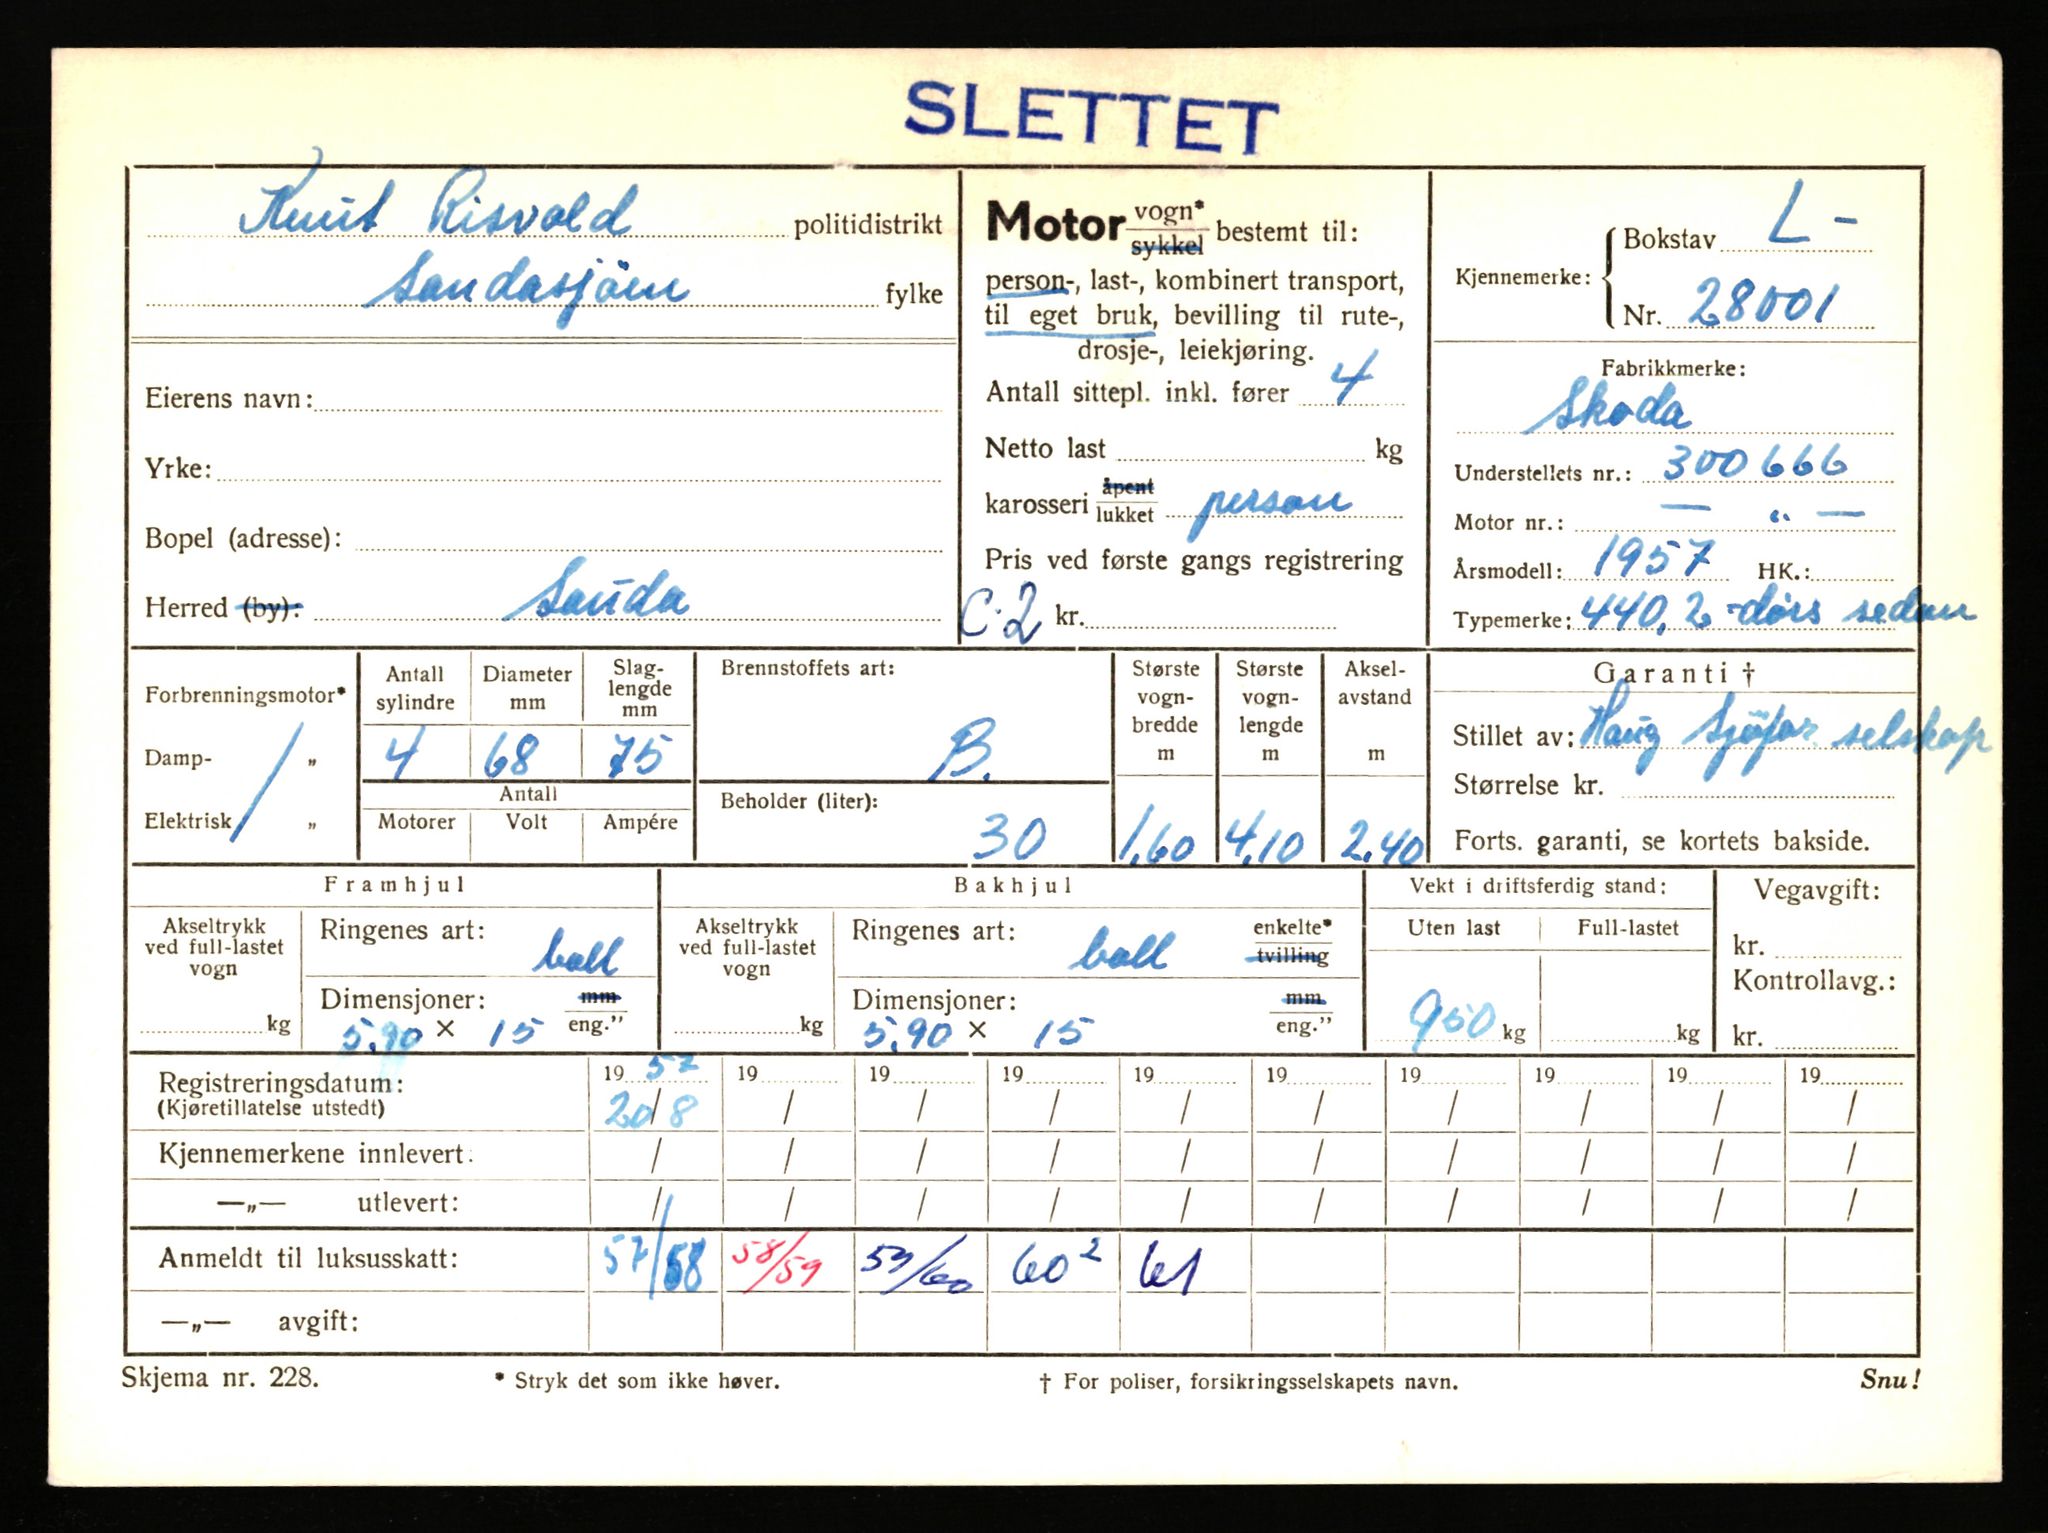 SLETTET
Knut Risvold politidistrikt
Saudasjöen fylke
Eierens navn:
Yrke:
Bopel (adresse):
Herred (by): Sauda
Motor vogn* sykkel bestemt til:
person-, last-, kombinert transport,
til eget bruk, bevilling til rute-,
drosje-, leiekjøring.
Antall sittepl. inkl. fører 4
Netto last kg
karosseri åpent lukket person
Pris ved første gangs registrering
C-2 kr.
Kjennemerke: Bokstav L-
Nr. 28001
Fabrikkmerke:
Skoda
Understellets nr.: 300666
Motor nr.: — " —
Årsmodell: 1957 HK.:
Typemerke: 440, 2-dörs sedan
Forbrenningsmotor*
Damp- „
Elektrisk „
Antall sylindre Diameter mm Slag-lengde mm
4 68 75
Antall
Motorer Volt Ampére
Brennstoffets art:
B.
Beholder (liter):
30
Største vogn-bredde m Største vogn-lengde m Aksel-avstand m
1,60 4,10 2.40
Garanti †
Stillet av: Haug Sjöfor. selskap
Størrelse kr.
Forts. garanti, se kortets bakside.
Framhjul
Akseltrykk ved full-lastet vogn kg
Ringenes art: ball
Dimensjoner: mm eng."
5.90 × 15
Bakhjul
Akseltrykk ved full-lastet vogn kg
Ringenes art: ball enkelte* tvilling
Dimensjoner: mm eng."
5,90 × 15
Vekt i driftsferdig stand:
Uten last Full-lastet
950 kg kg
Vegavgift:
kr.
Kontrollavg.:
kr.
Registreringsdatum: 19 57 19 19 19 19 19 19 19 19 19
(Kjøretillatelse utstedt) 20/8 / / / / / / / / /
Kjennemerkene innlevert: / / / / / / / / / /
—„— utlevert: / / / / / / / / / /
Anmeldt til luksusskatt: 57/58 58/59 59/60 60² 61
—„— avgift:
Skjema nr. 228. * Stryk det som ikke høver. † For poliser, forsikringsselskapets navn. Snu!